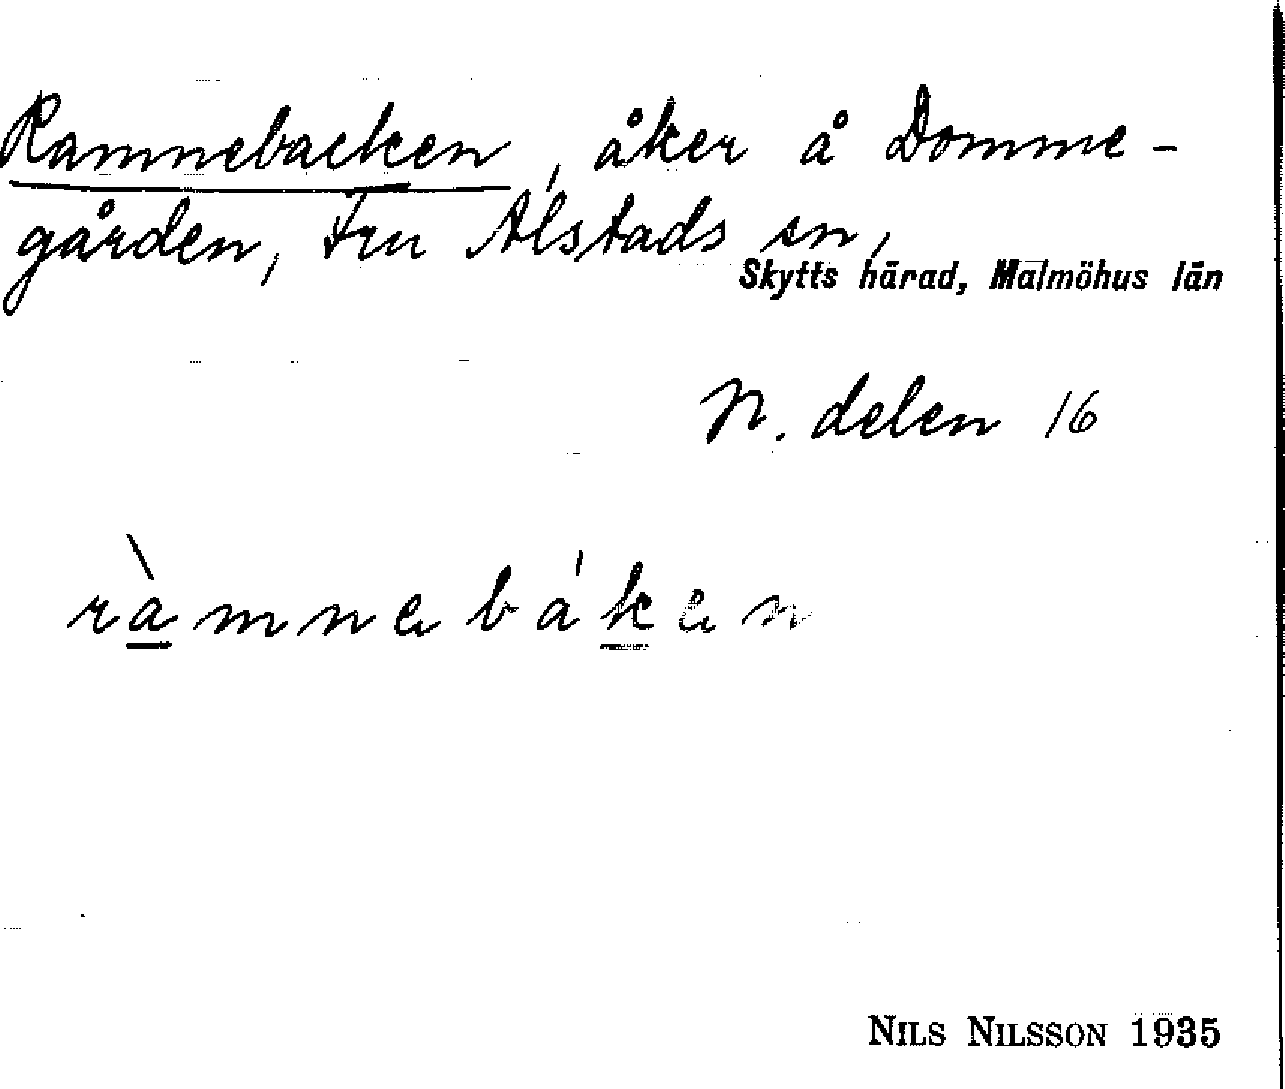 Ramnebacken, åker å Domme-
gården, Fru Alstads sn,
Skytts härad, Malmöhus län
N. delen 16
ràmnebáken
NILS NILSSON 1935